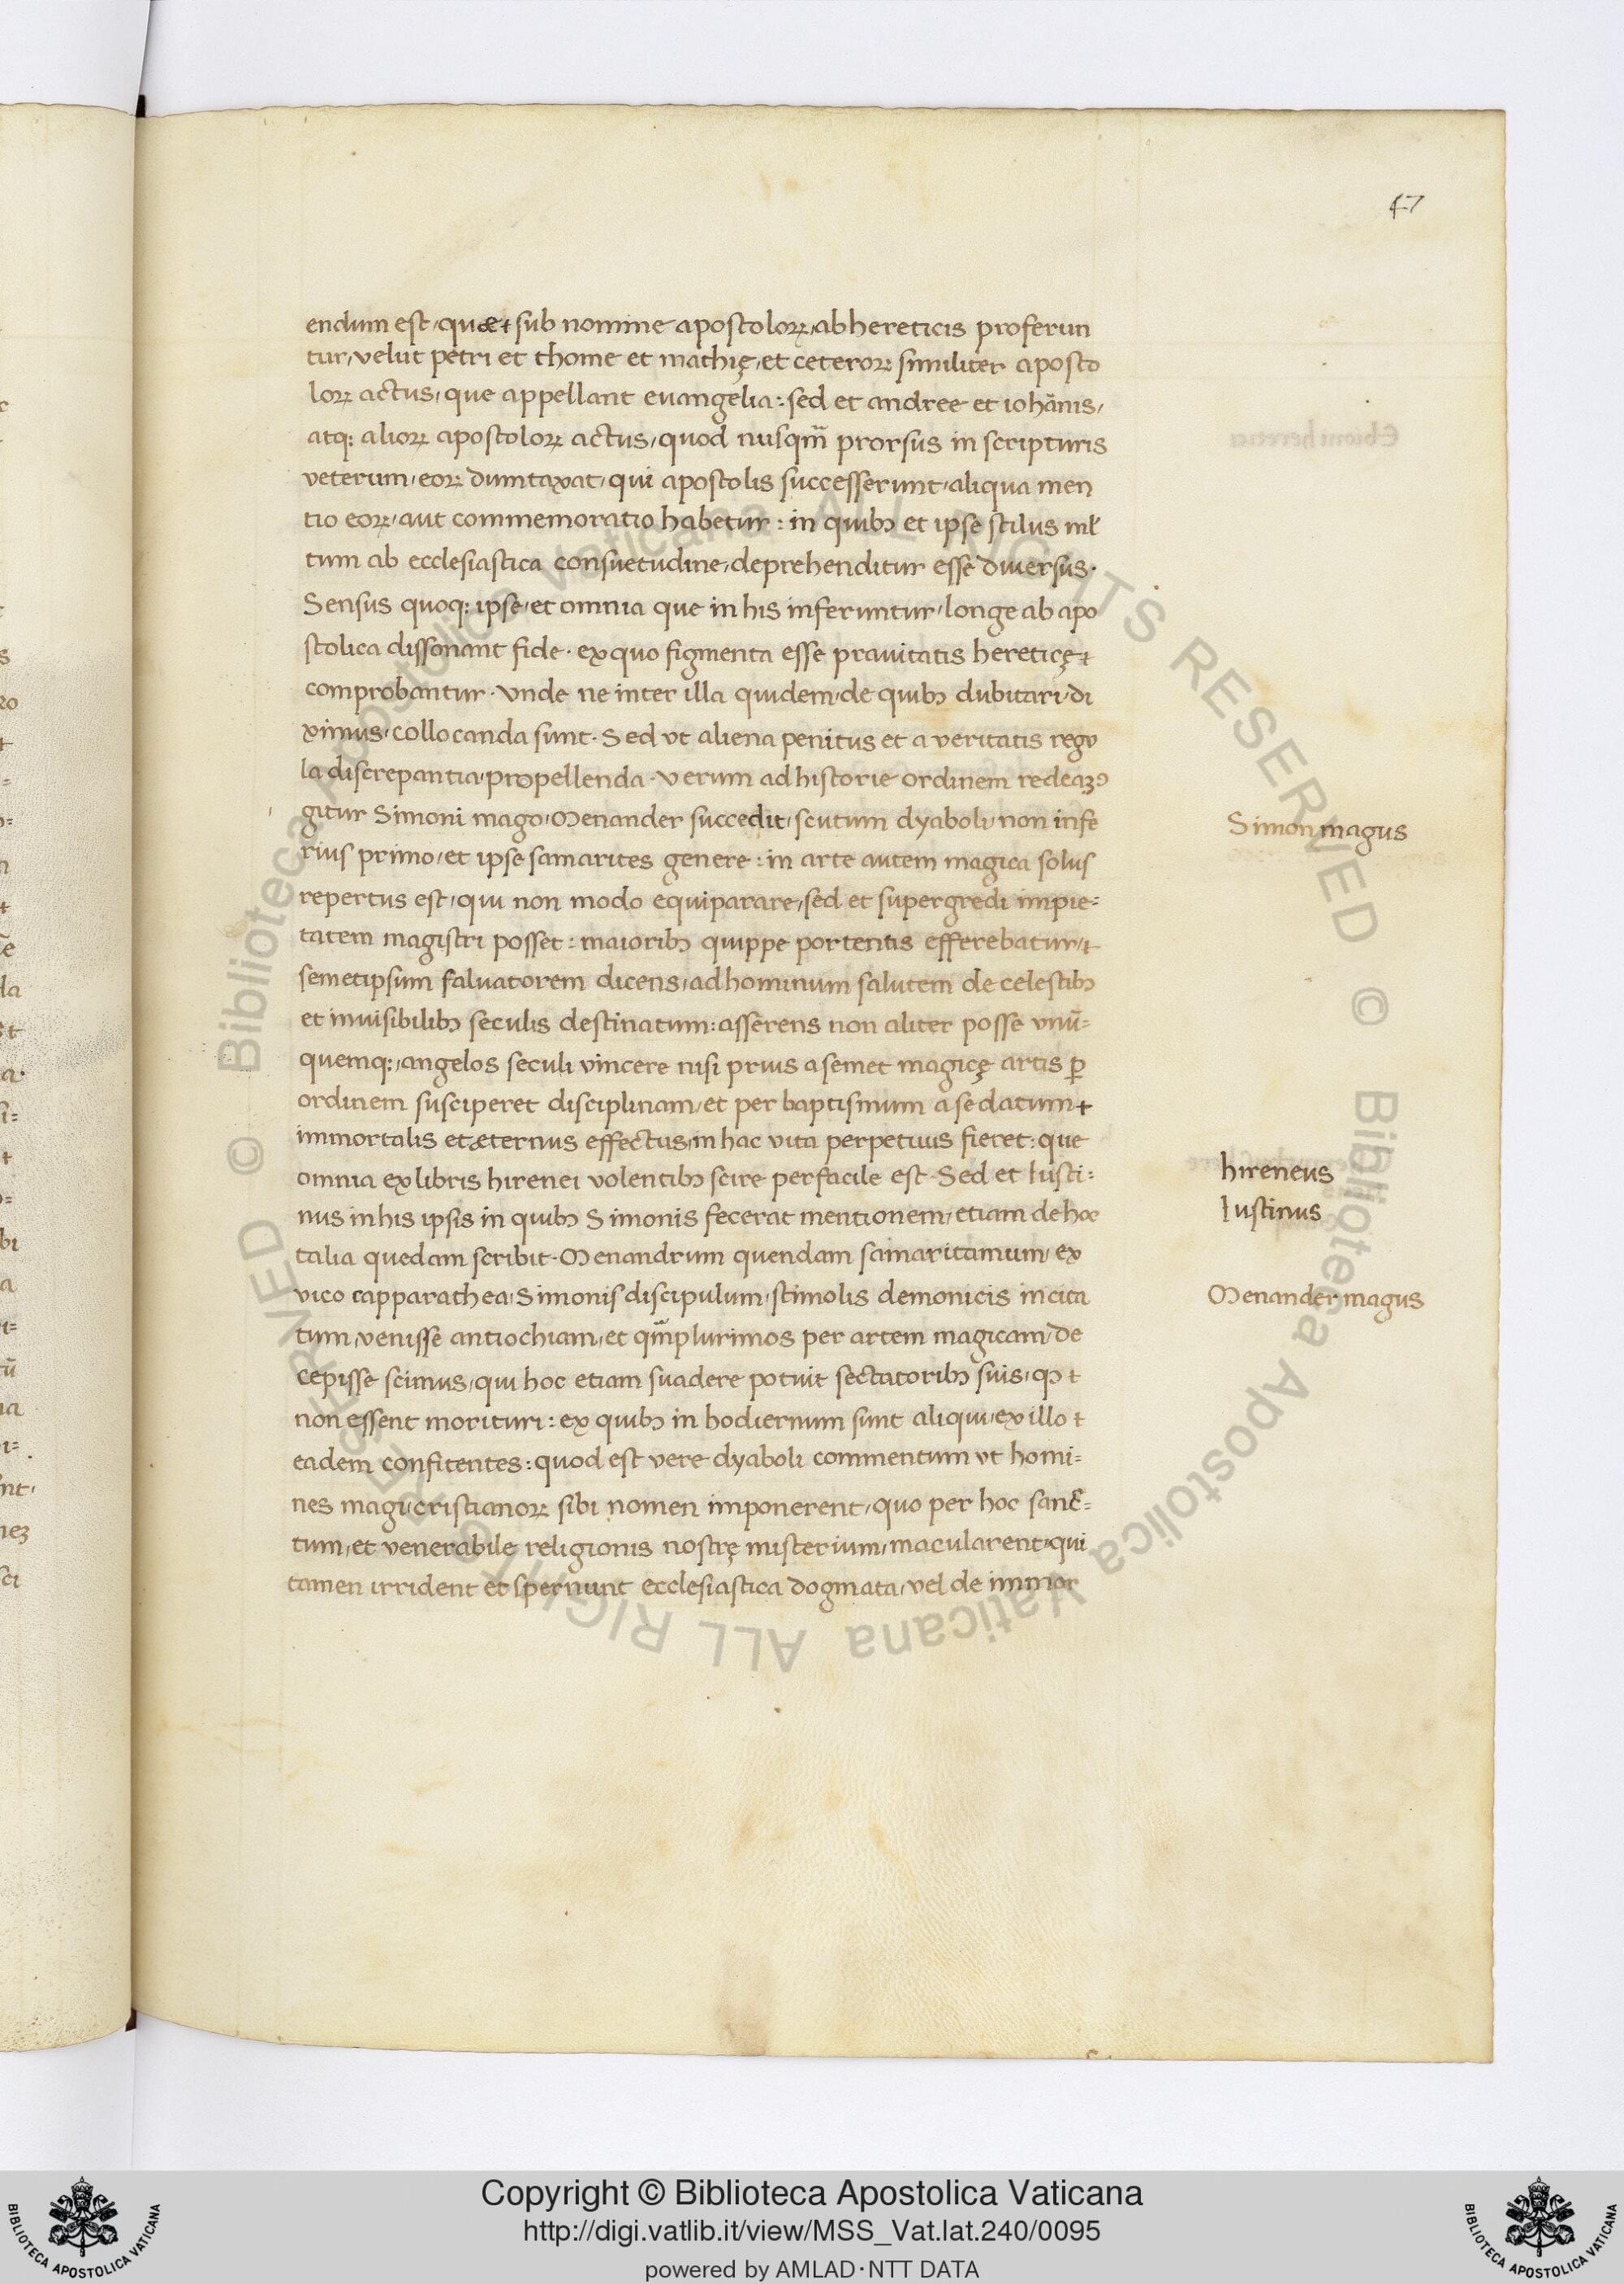 47
endum est, quæ sub nomine apostolorꝝ, ab hereticis proferun
tur, velut petri et thome et mathię, et ceterorꝝ similiter aposto
lorꝝ actus, que appellant euangelia: sed et andree et iohãnis,
atqꝫ aliorꝝ apostolorꝝ actus, quod nusqm̃ prorsus in scripturis
veterum, eorꝝ dumtaxat, qui apostolis successerunt, aliqua men
tio eorꝝ, aut commemoratio habetur: in quibꝫ et ipse stilus ml̃
tum ab ecclesiastica consuetudine, deprehenditur esse diuersus.
Sensus quoqꝫ ipse, et omnia que in his inferuntur, longe ab apo
stolica dissonant fide. ex quo figmenta esse prauitatis hereticę
comprobantur. vnde ne inter illa quidem, de quibꝫ dubitari, di
ximus, collocanda sunt. Sed vt aliena penitus et a veritatis regu
la discrepantia, propellenda. verum ad historie ordinem redeaꝫꝰ
gitur Simoni mago, Menander succedit, scutum dyaboli, non infe
rius primo, et ipse samarites genere: in arte autem magica solus
repertus est, qui non modo equiparare, sed et supergredi impie=
tatem magistri posset: maioribꝫ quippe portentis efferebatur,
semetipsum saluatorem dicens, ad hominum salutem de celestibꝫ
et inuisibilibꝫ seculis destinatum: asserens non aliter posse vnũ=
quemqꝫ, angelos seculi vincere nisi prius a semet magicę artis ꝑ
ordinem susciperet disciplinam, et per baptismum a se datum
immortalis et æternus effectus, in hac vita perpetuus fieret: que
omnia ex libris hirenei volentibꝫ scire perfacile est. Sed et Iusti=
nus in his ipsis in quibꝫ Simonis fecerat mentionem, etiam de hoc
talia quedam scribit. Menandrum quendam samaritanum, ex
vico capparathea, Simonis discipulum, stimolis demonicis incita
tum, venisse antiochiam, et qm̃plurimos per artem magicam, de
cepisse scimus, qui hoc etiam suadere potuit sectatoribꝫ suis, qꝫ
non essent morituri: ex quibꝫ in hodiernum sunt aliqui, ex illo
eadem confitentes: quod est vere dyaboli commentum vt homi=
nes magi, cristianorꝝ sibi nomen imponerent, quo per hoc sanc=
tum, et venerabile religionis nostrę misterium, macularent, qui
tamen irrident et spernunt ecclesiastica dogmata, vel de immor
Simon magus
hireneus
Iustinus
Menander magus
© Biblioteca Apostolica Vaticana ALL RIGHTS RESERVED © Biblioteca Apostolica Vaticana ALL RIGHTS RESERVED
Copyright © Biblioteca Apostolica Vaticana
http://digi.vatlib.it/view/MSS_Vat.lat.240/0095
powered by AMLAD·NTT DATA
BIBLIOTECA APOSTOLICA VATICANA
BIBLIOTECA APOSTOLICA VATICANA